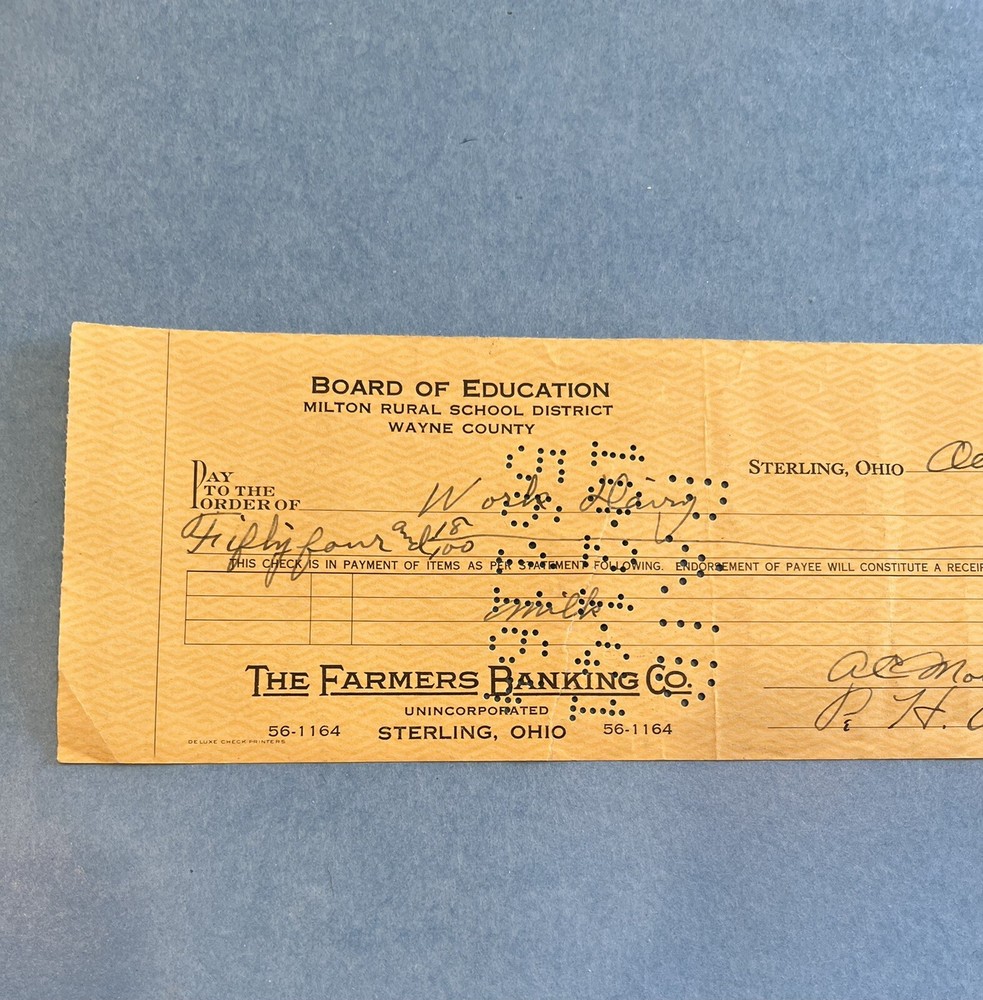 BOARD OF EDUCATION
MILTON RURAL SCHOOL DISTRICT
WAYNE COUNTY
STERLING, OHIO
PAY TO THE ORDER OF Work Dairy
Fifty four and 18/100
THIS CHECK IS IN PAYMENT OF ITEMS AS PER STATEMENT FOLLOWING. ENDORSEMENT OF PAYEE WILL CONSTITUTE A RECEIP
milk
THE FARMERS BANKING CO.
UNINCORPORATED
56-1164 STERLING, OHIO 56-1164
DELUXE CHECK PRINTERS
P. H.